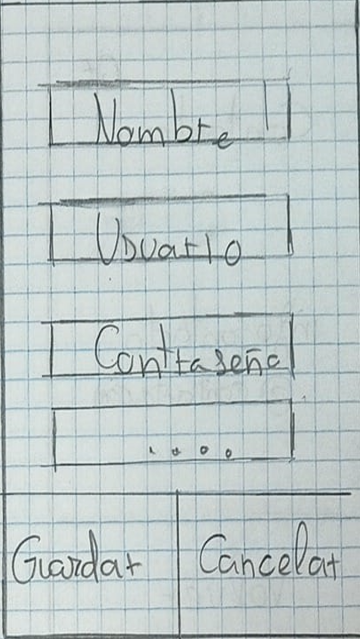 Nombre
Usuario
Contraseña
....
Guardar
Cancelar